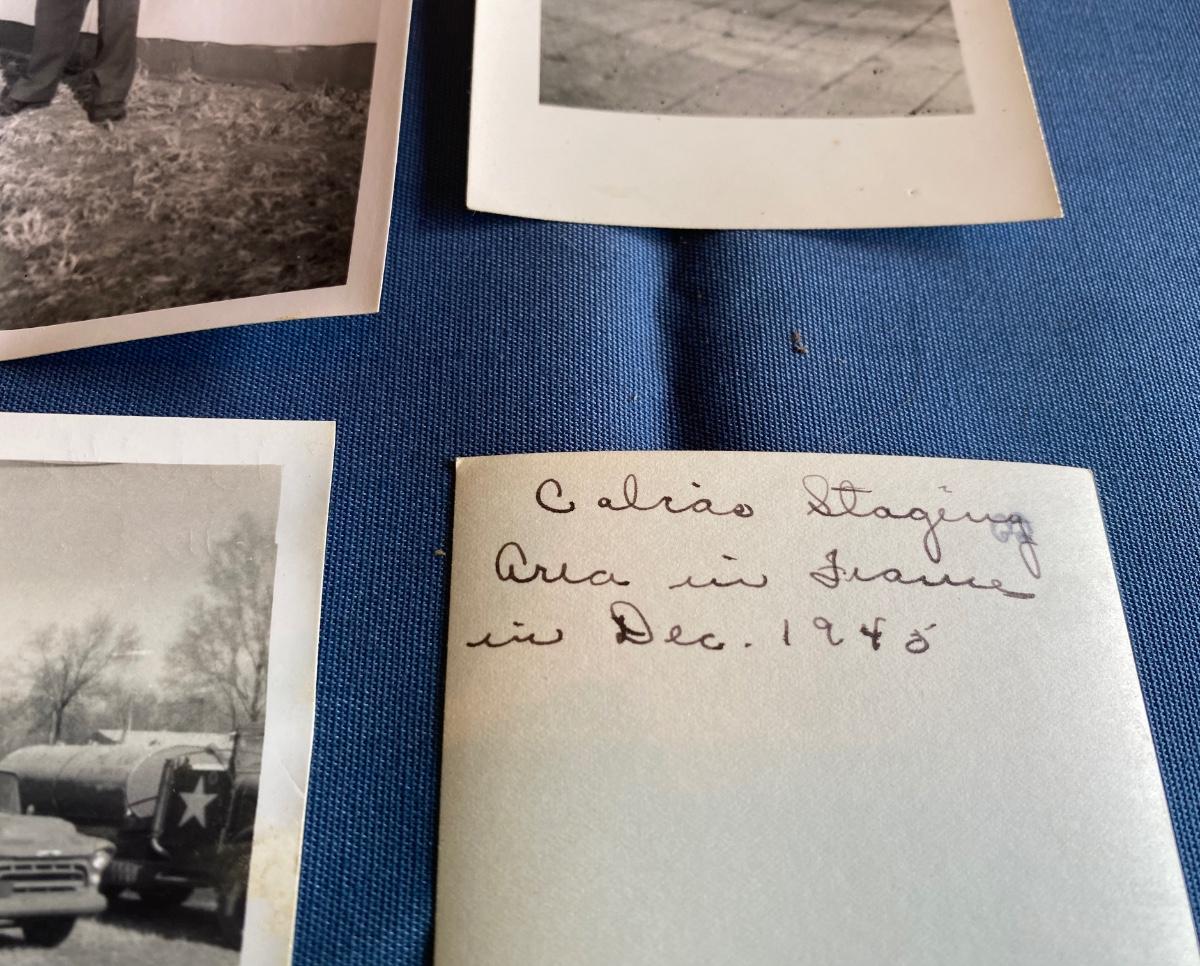 Calias Staging
Area in France
in Dec. 1945